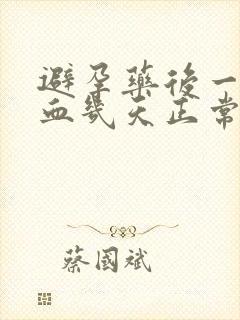 避孕藥後一
血幾天正常
蔡國斌